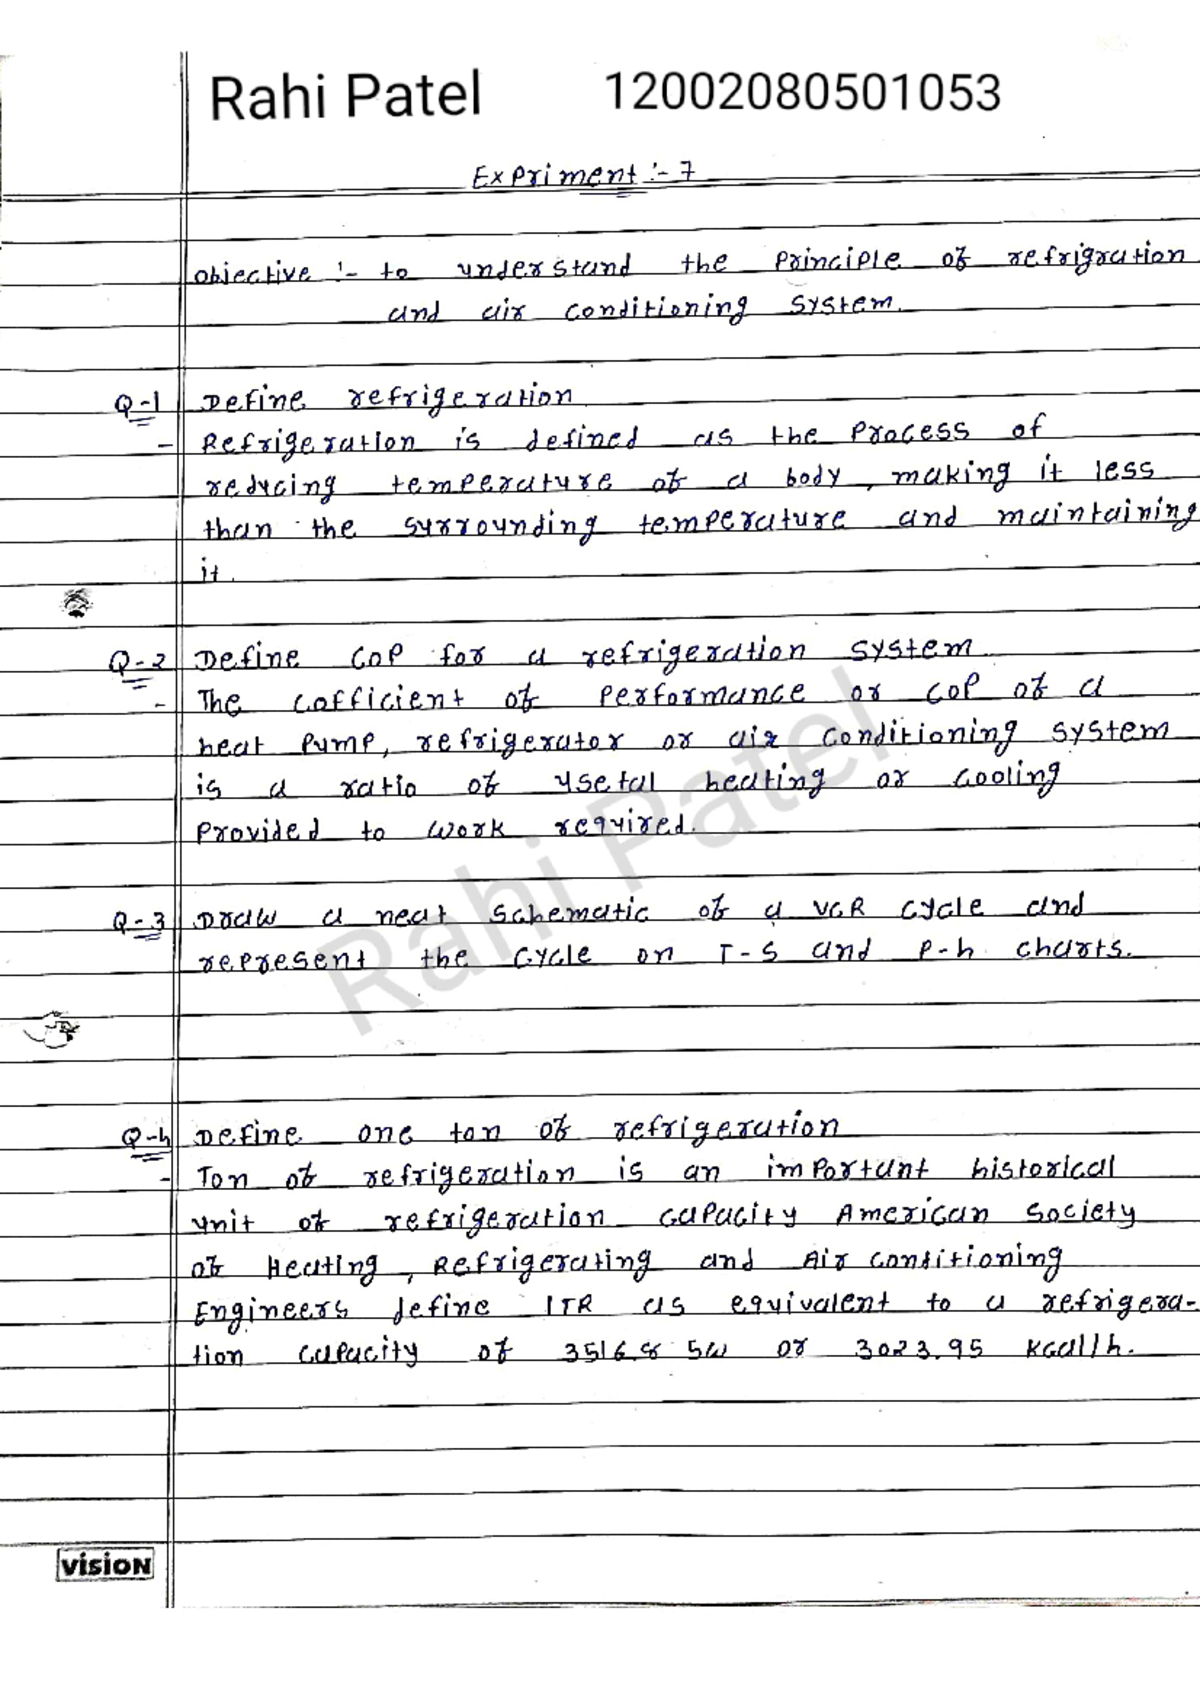 Rahi Patel 12002080501053
Expriment :- 7
objective :- to understand the principle of refrigration
and air conditioning system.
Q-1 Define refrigeration.
- Refrigeration is defined as the process of
reducing temperature of a body, making it less
than the surrounding temperature and maintaining
it.
Q-2 Define COP for a refrigeration system
- The cofficient of performance or COP of a
heat pump, refrigerator or air conditioning system
is a ratio of usetal heating or cooling
provided to work required.
Q-3 Draw a neat schematic of a VCR cycle and
represent the cycle on T-S and P-h charts.
Q-4 Define one ton of refrigeration
- Ton of refrigeration is an important historical
unit of refrigeration capacity American Society
of Heating, Refrigerating and Air conditioning
Engineers define 1TR as equivalent to a refrigera-
tion capacity of 3516.8 5W or 3023.95 kcal/h.
Rahi Patel
vision